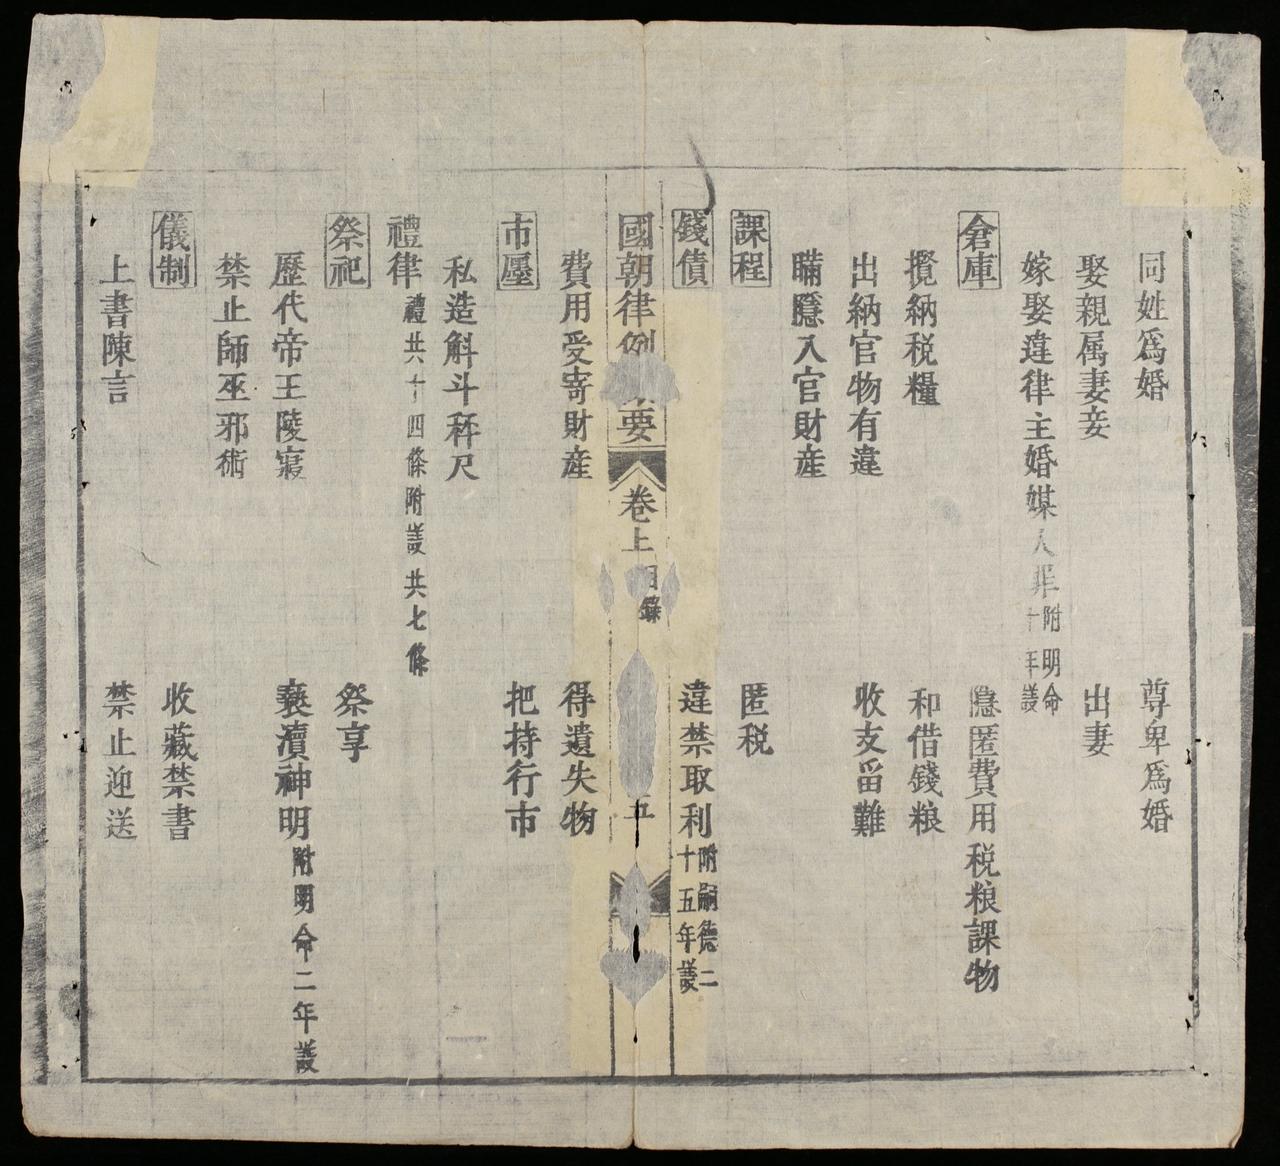 同姓爲婚　尊卑爲婚
娶親属妻妾　出妻
嫁娶違律主婚媒人罪附明命十年議
倉庫　隱匿費用税粮課物
攬納税糧　和借錢粮
出納官物有違　收支畄難
瞞隱入官財産
課程　匿税
錢債　違禁取利附嗣德二十五年議
國朝律例要　卷上　目錄　五
費用受寄財産　得遺失物
市廛　把持行市
私造斛斗秤尺
禮律禮共十四條附議共七條
祭祀　祭享
歷代帝王陵寢　褻瀆神明附明命二年議
禁止師巫邪術
儀制　收藏禁書
上書陳言　禁止迎送